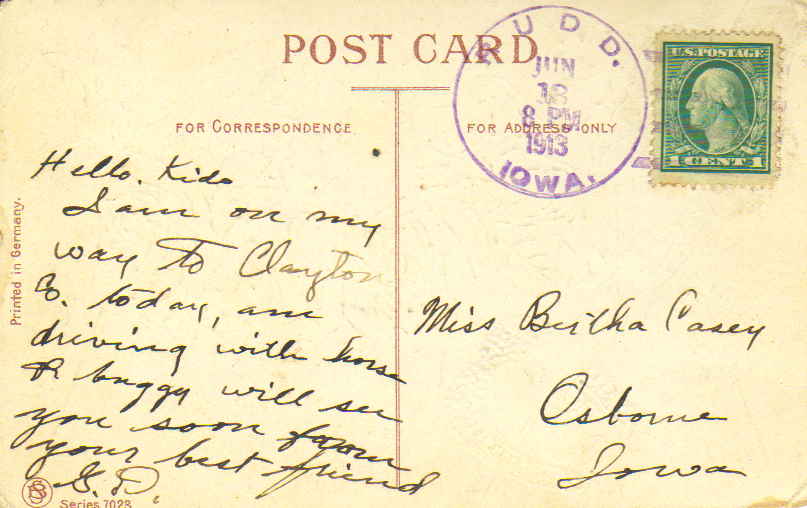 POST CARD
RUDD.
JUN
18
8 PM
1913
IOWA.
U.S. POSTAGE
1 CENT 1
FOR CORRESPONDENCE
FOR ADDRESS ONLY
Hello. Kido
I am on my
way to Clayton
Co. today, am
driving with horse
& buggy will see
you soon from
your best friend
G. D.
Miss Bertha Casey
Osborne
Iowa
Printed in Germany.
Series 7028